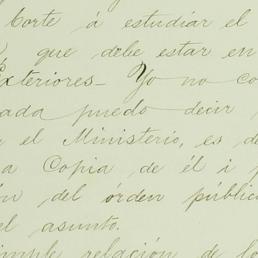 Corte á estudiar el
que debe estar en
Exteriores- Yo no co
ada puedo decir
el Ministerio, es de
a Copia de él i p
ón del órden públic
el asunto.
imple relación de lo